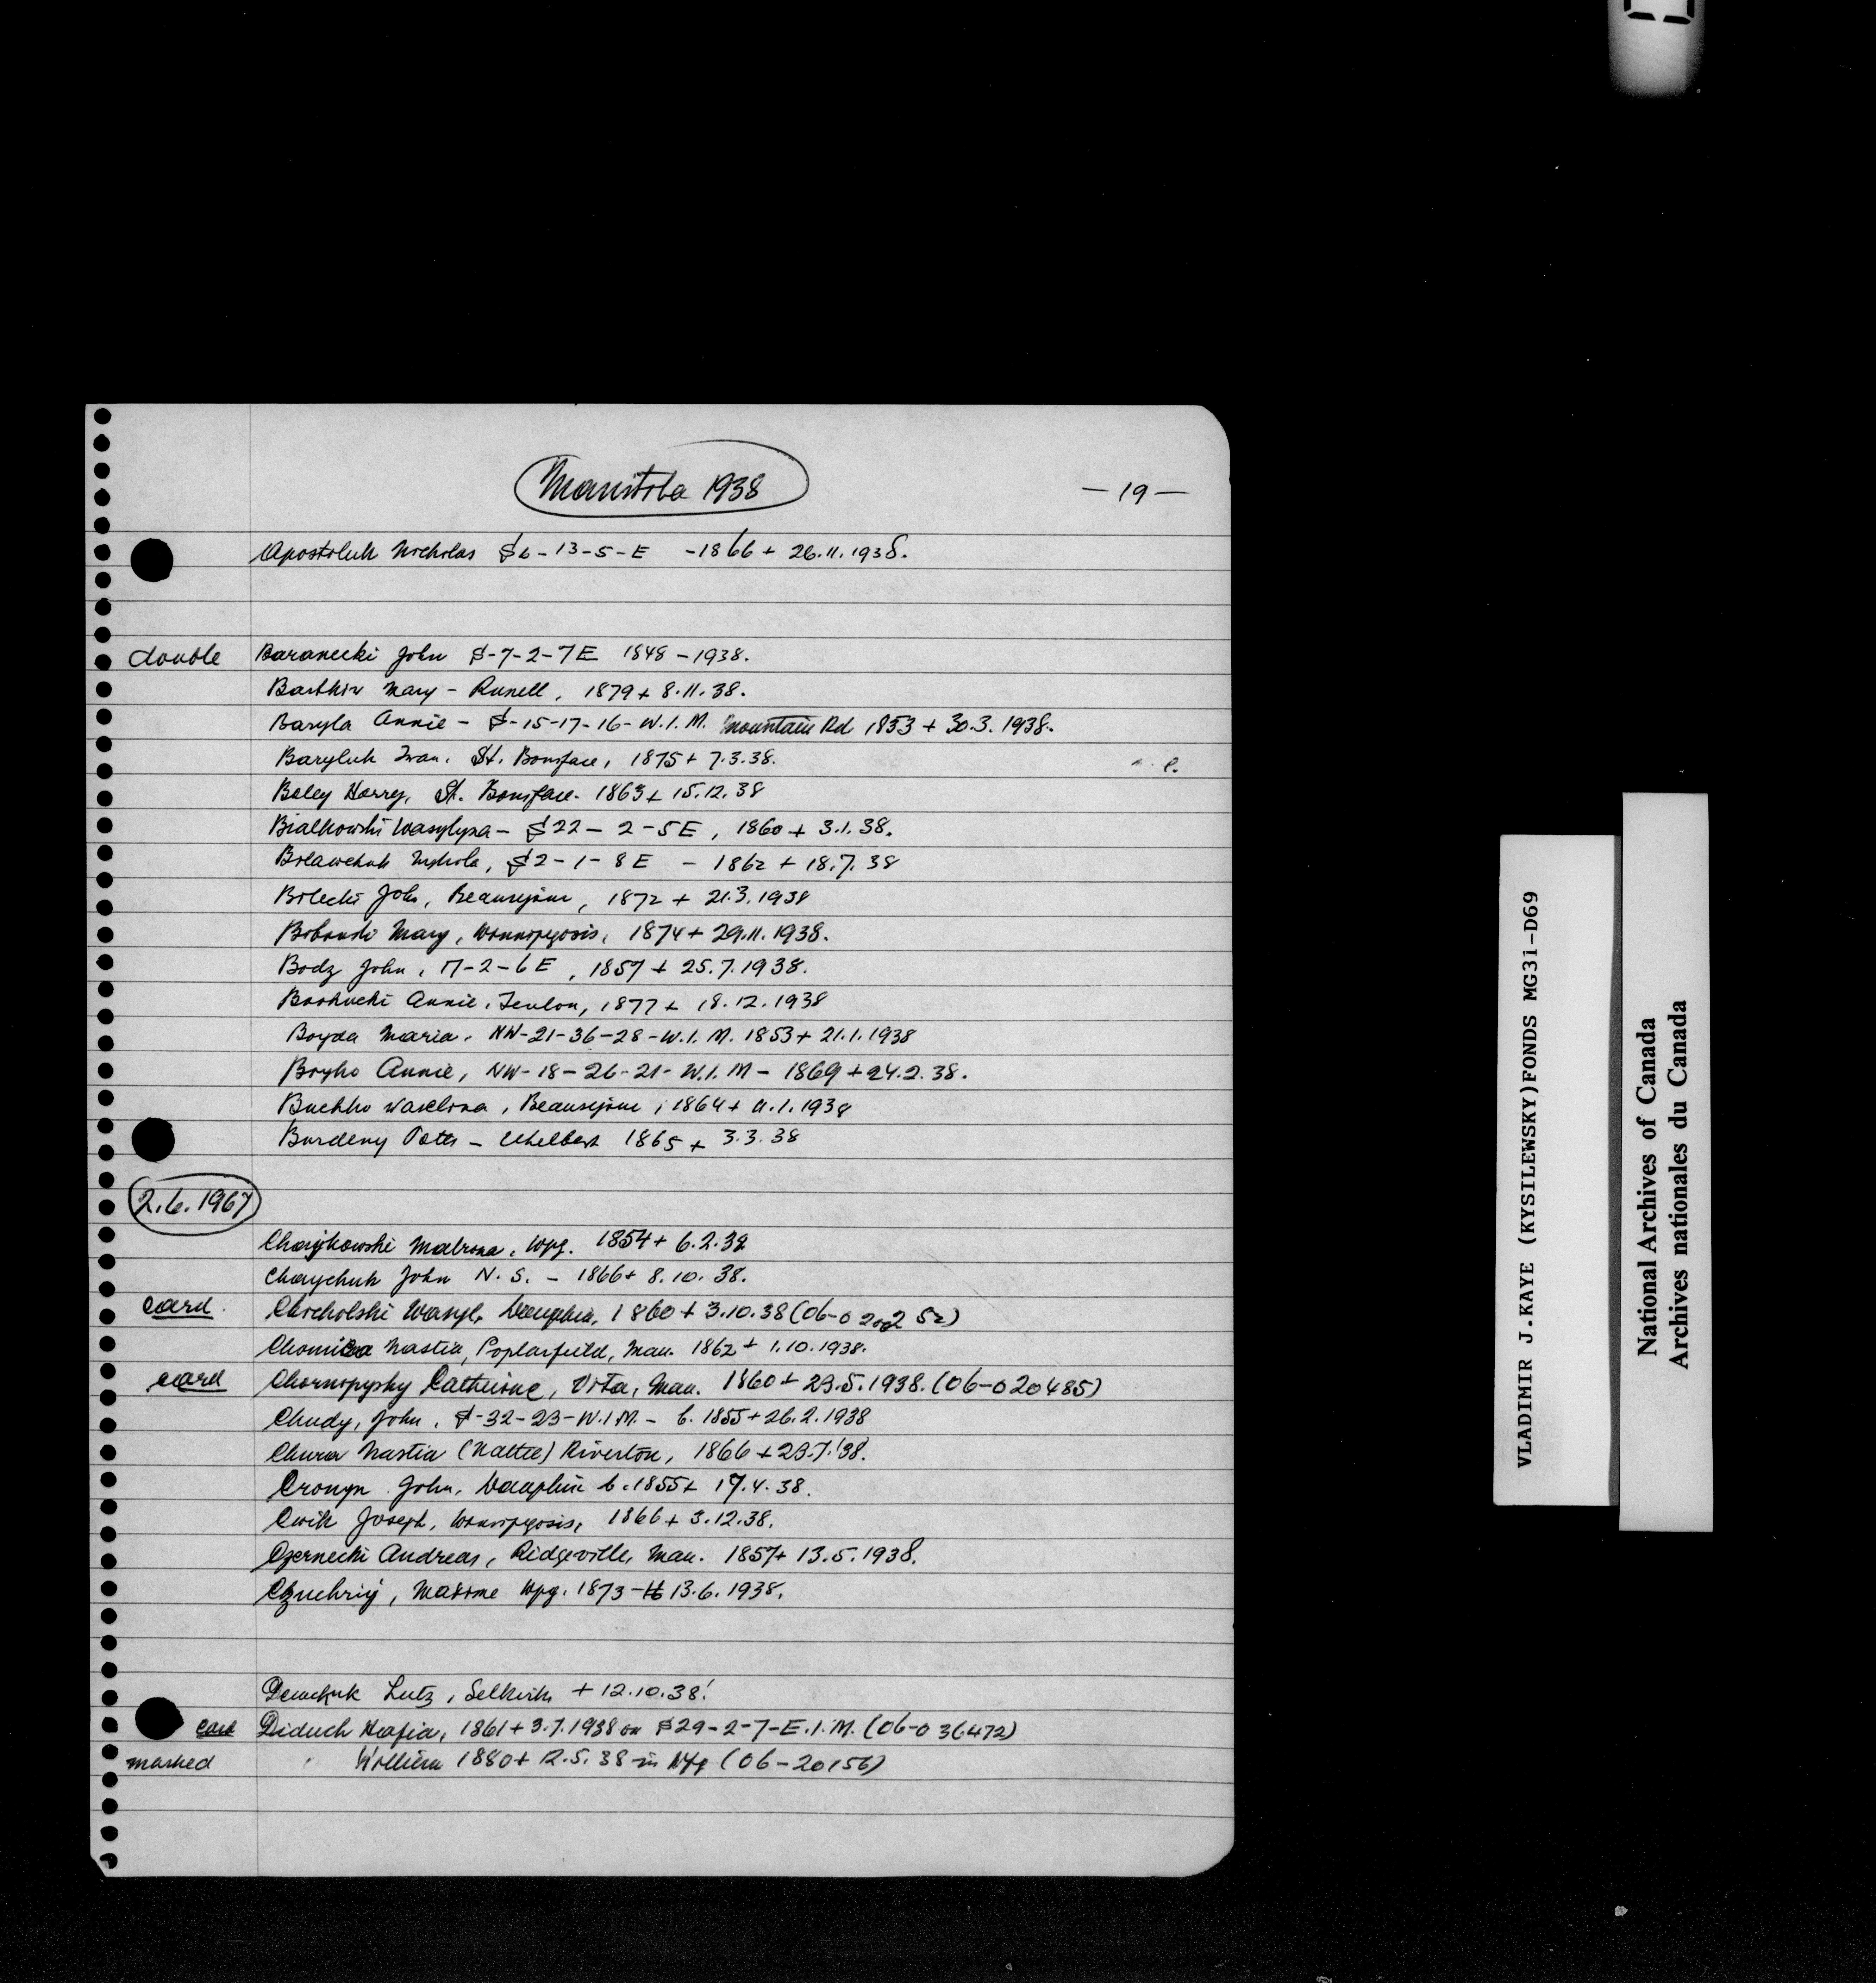 Manitoba 1938
— 19 —
Apostoluk Nicholas S6-13-5-E -1866 + 26.11.1938.
double Baranecki John S-7-2-7E 1848 - 1938.
Mary - 1879 + 8.11.38.
Baryla Annie - S-15-17-16-W.1.M. Mountain Rd 1853 + 30.3.1938.
Baryluk Iwan, St. Boniface, 1875 + 7.3.38.
Boley Harry, St. Boniface. 1863 + 15.12.38
Bialkowski Wasylyna - S22-2-5E, 1860 + 3.1.38.
S2-1-8E - 1862 + 18.7.38
Bilecki John, Beausejour, 1872 + 21.3.1938
Mary, Winnipegosis, 1874 + 29.11.1938.
Bodz John, 17-2-6E, 1857 + 25.7.1938.
Annie, Teulon, 1877 + 18.12.1938
Boyda Maria, NW-21-36-28-W.1.M. 1853 + 21.1.1938
Bryho Annie, NW-18-26-21-W.1.M - 1869 + 24.2.38.
Buchko Beausejour, 1864 + 11.1.1938
Burdeny Peter - Ethelbert 1865 + 3.3.38
2.6.1967
Chajkowski Matrona, Wpg. 1854 + 6.2.38
Chaychuk John N.S. - 1866 + 8.10.38.
card. Wasyl, Dauphin, 1860 + 3.10.38
Nastia, Poplarfield, Man. 1862 + 1.10.1938.
card Chornopysky Catherine, Vita, Man. 1860 + 23.5.1938. (06-020485)
Chudy, John, S-32-23-W.1M. - b. 1855 + 26.2.1938
Chura Nastia (Nattie) Riverton, 1866 + 23.7.'38.
Cronyn John, Dauphin b. 1855 + 17.4.38.
Cwik Joseph, Winnipegosis, 1866 + 3.12.38.
Czernecki Andreas, Ridgeville, Man. 1857 + 13.5.1938.
Wpg. 1873 - 13.6.1938.
Demchuk Lutz, Selkirk + 12.10.38!
card Diduch Hafia, 1861 + 3.7.1938 on S29-2-7-E.1.M. (06-036472)
marked William 1880 + 12.5.38 in Wpg (06-20156)
VLADIMIR J.KAYE (KYSILEWSKY)FONDS MG31-D69
National Archives of Canada
Archives nationales du Canada